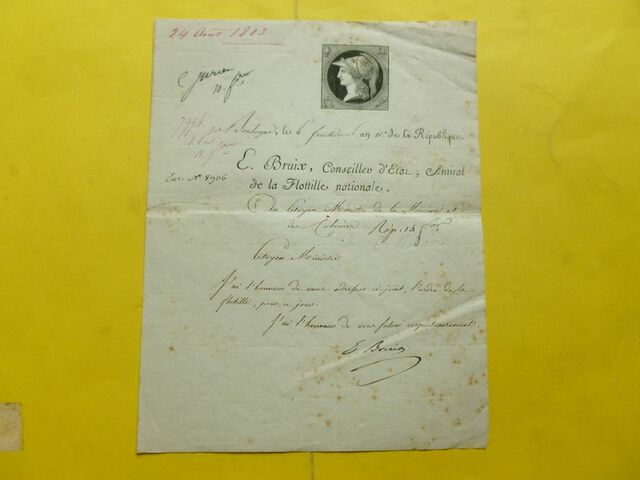 24 Août 1803
Boulogne, le 6 fructidor an 11e de la République.
E. Bruix, Conseiller d'Etat, Amiral
de la Flottille nationale.
Enr. No 8906
Au Citoyen Ministre de la Marine et
des Colonies. Rép. 14
Citoyen Ministre
J'ai l'honneur de vous adresser ci-joint, l'ordre de la
flottille, pour ce jour.
J'ai l'honneur de vous saluer respectueusement
E. Bruix